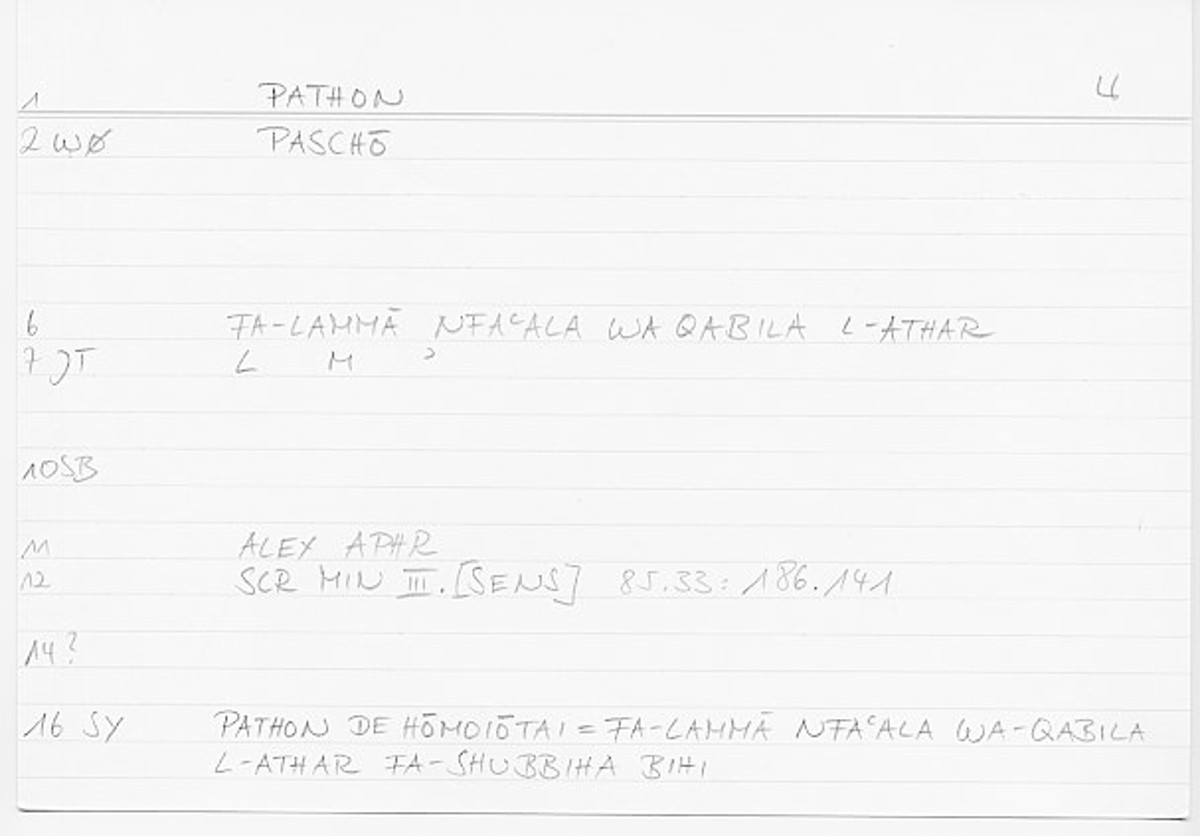 1 PATHON 4
2 WØ PASCHŌ
6 FA-LAMMĀ NFAʿALA WA QABILA L-ATHAR
7 JT L M ʾ
10 SB
11 ALEX APHR
12 SCR MIN III.[SENS] 85.33: 186.141
14?
16 SY PATHON DE HŌMOIŌTAI = FA-LAMMĀ NFAʿALA WA-QABILA
L-ATHAR FA-SHUBBIHA BIHI